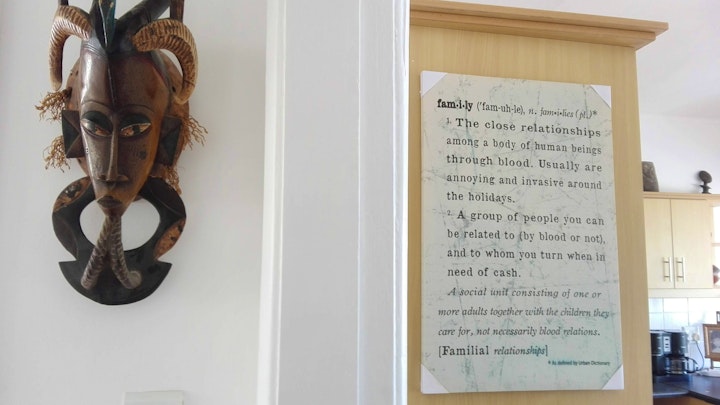 fam·i·ly ('fam-uh-le), n. fam·i·lies (pl.)*
1. The close relationships
among a body of human beings
through blood. Usually are
annoying and invasive around
the holidays.
2. A group of people you can
be related to (by blood or not),
and to whom you turn when in
need of cash.
A social unit consisting of one or
more adults together with the children they
care for, not necessarily blood relations.
[Familial relationships]
* As defined by Urban Dictionary